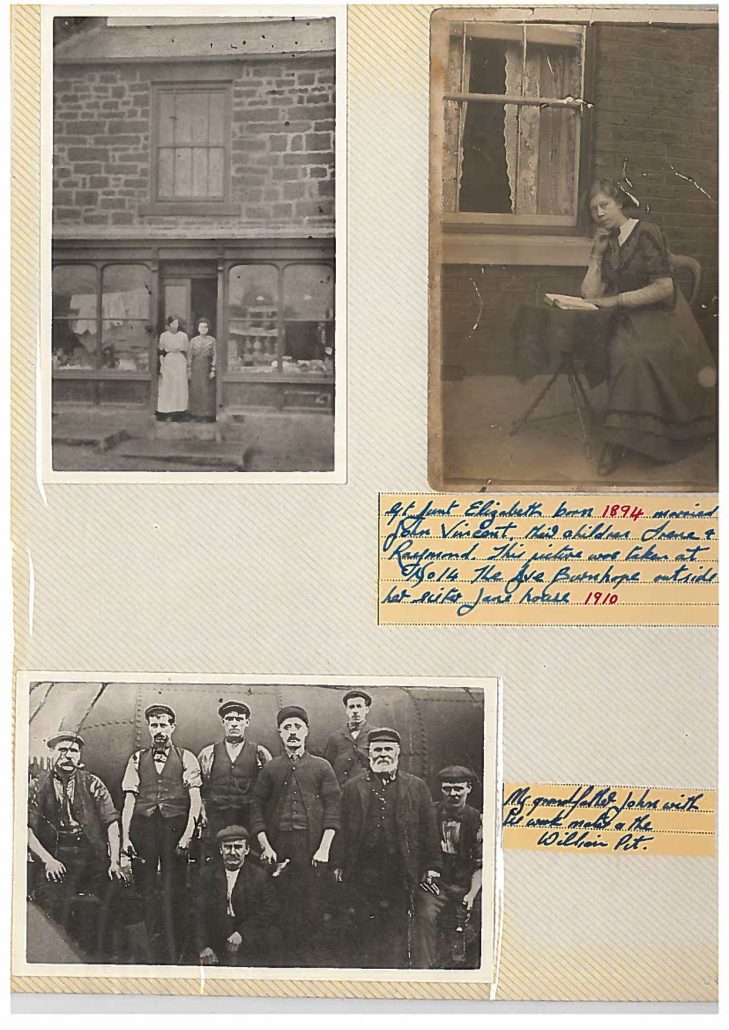 Gt Aunt Elizabeth born 1894 married
John Vincent. Had children Irene &
Raymond. This picture was taken at
No 14 The Ave Burnhope outside
her sister Jane house 1910
My grandfather John with
work mates a the
William Pit.